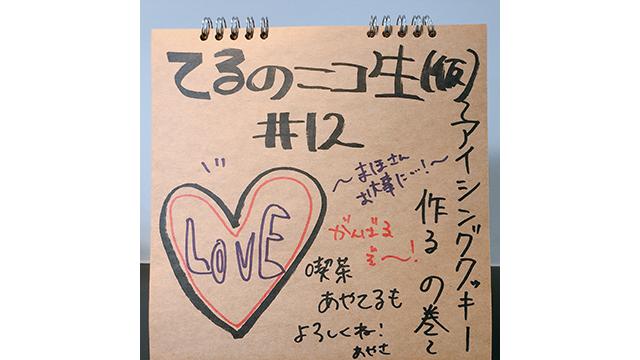 てるのニコ生(仮)
#12
〜アイシングクッキー
作るの巻〜
〜まほさん
お大事に…!〜
がんばる
ぞ〜!
LOVE
喫茶
あやてるも
よろしくね!
あやさ